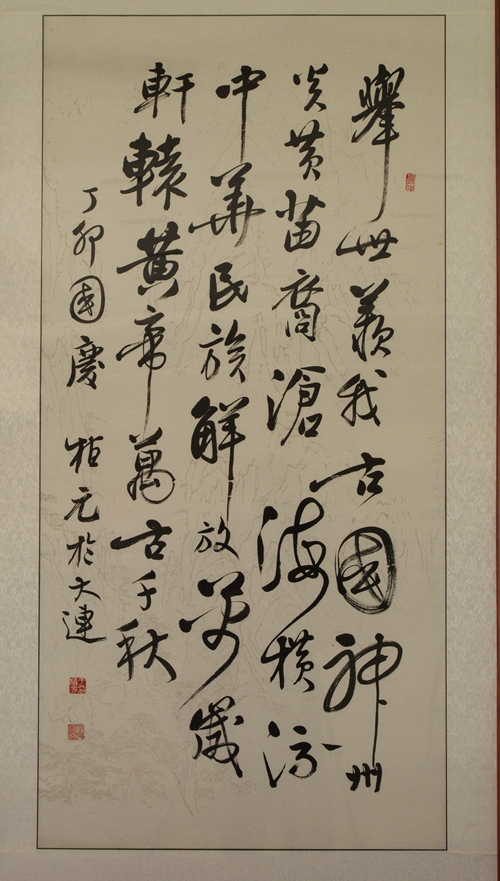 舉世羨我古國神州
炎黃苗裔滄海橫流
中華民族解放萬歲
軒轅黃帝萬古千秋
丁卯國慶 柏元於大連